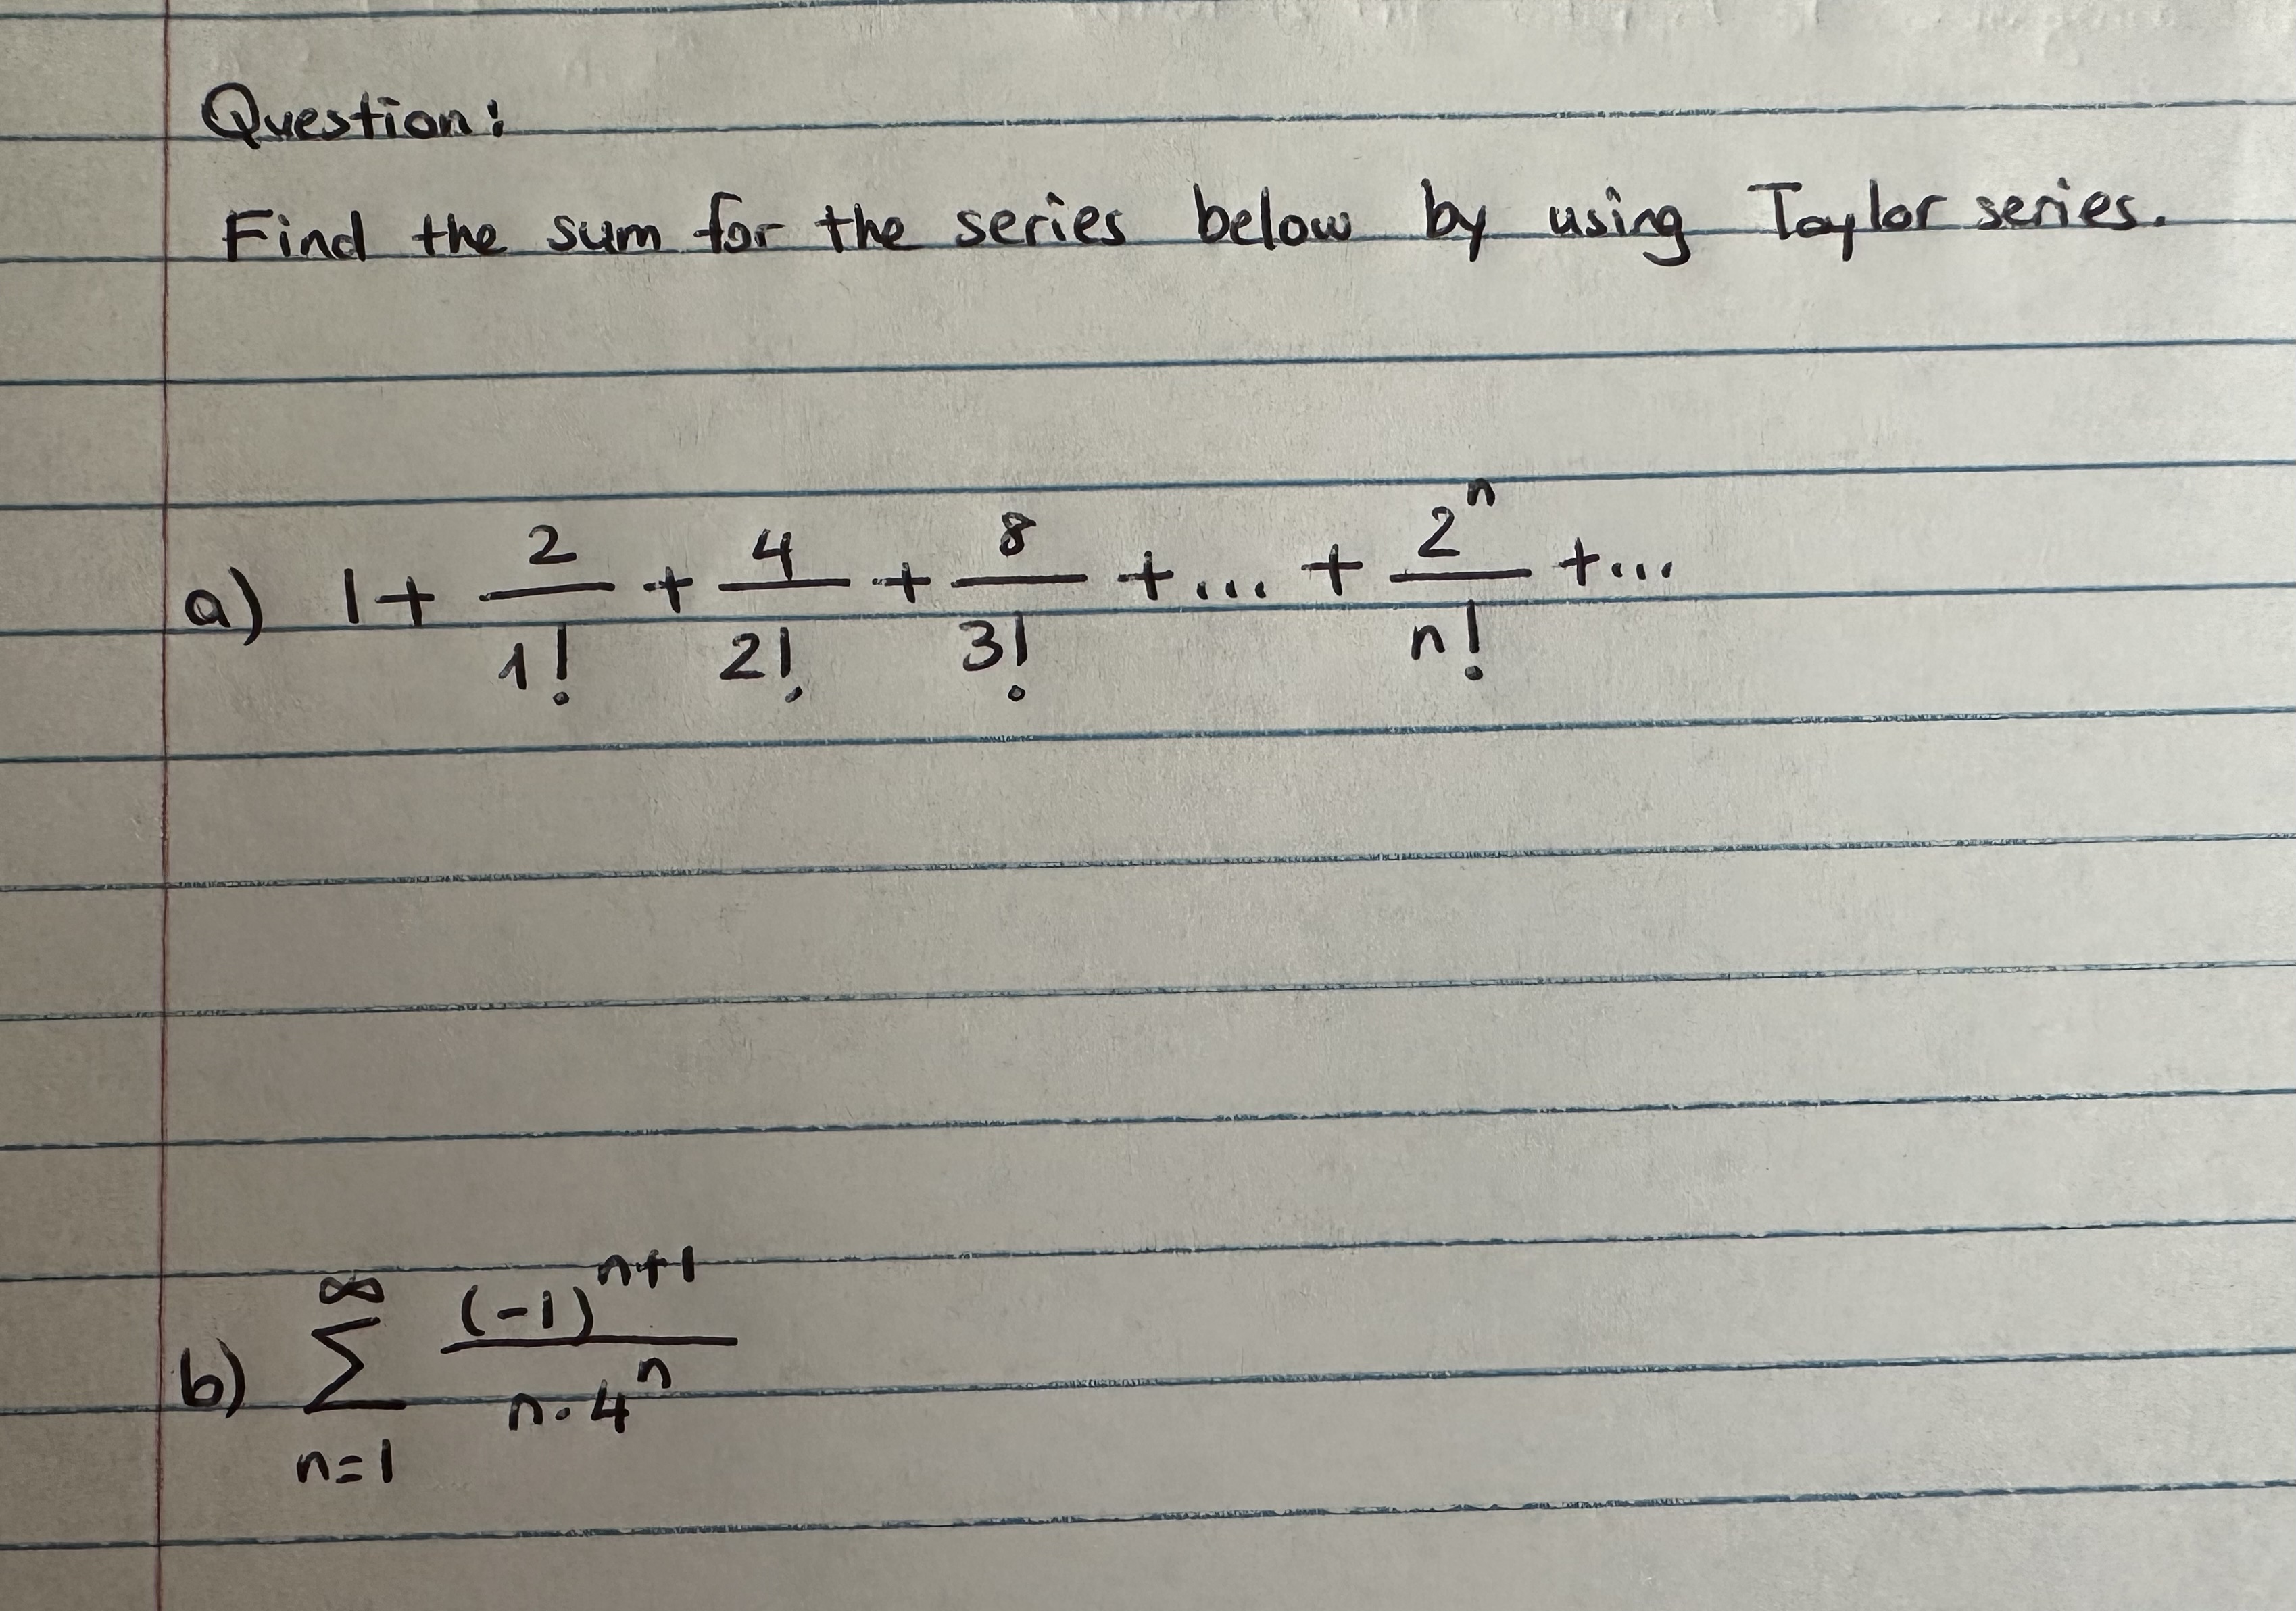 Question:
Find the sum for the series below by using Taylor series.
a) 1 + 2/1! + 4/2! + 8/3! + ... + 2^n/n! + ...
b) ∑_{n=1}^{∞} (-1)^{n+1}/(n·4^n)